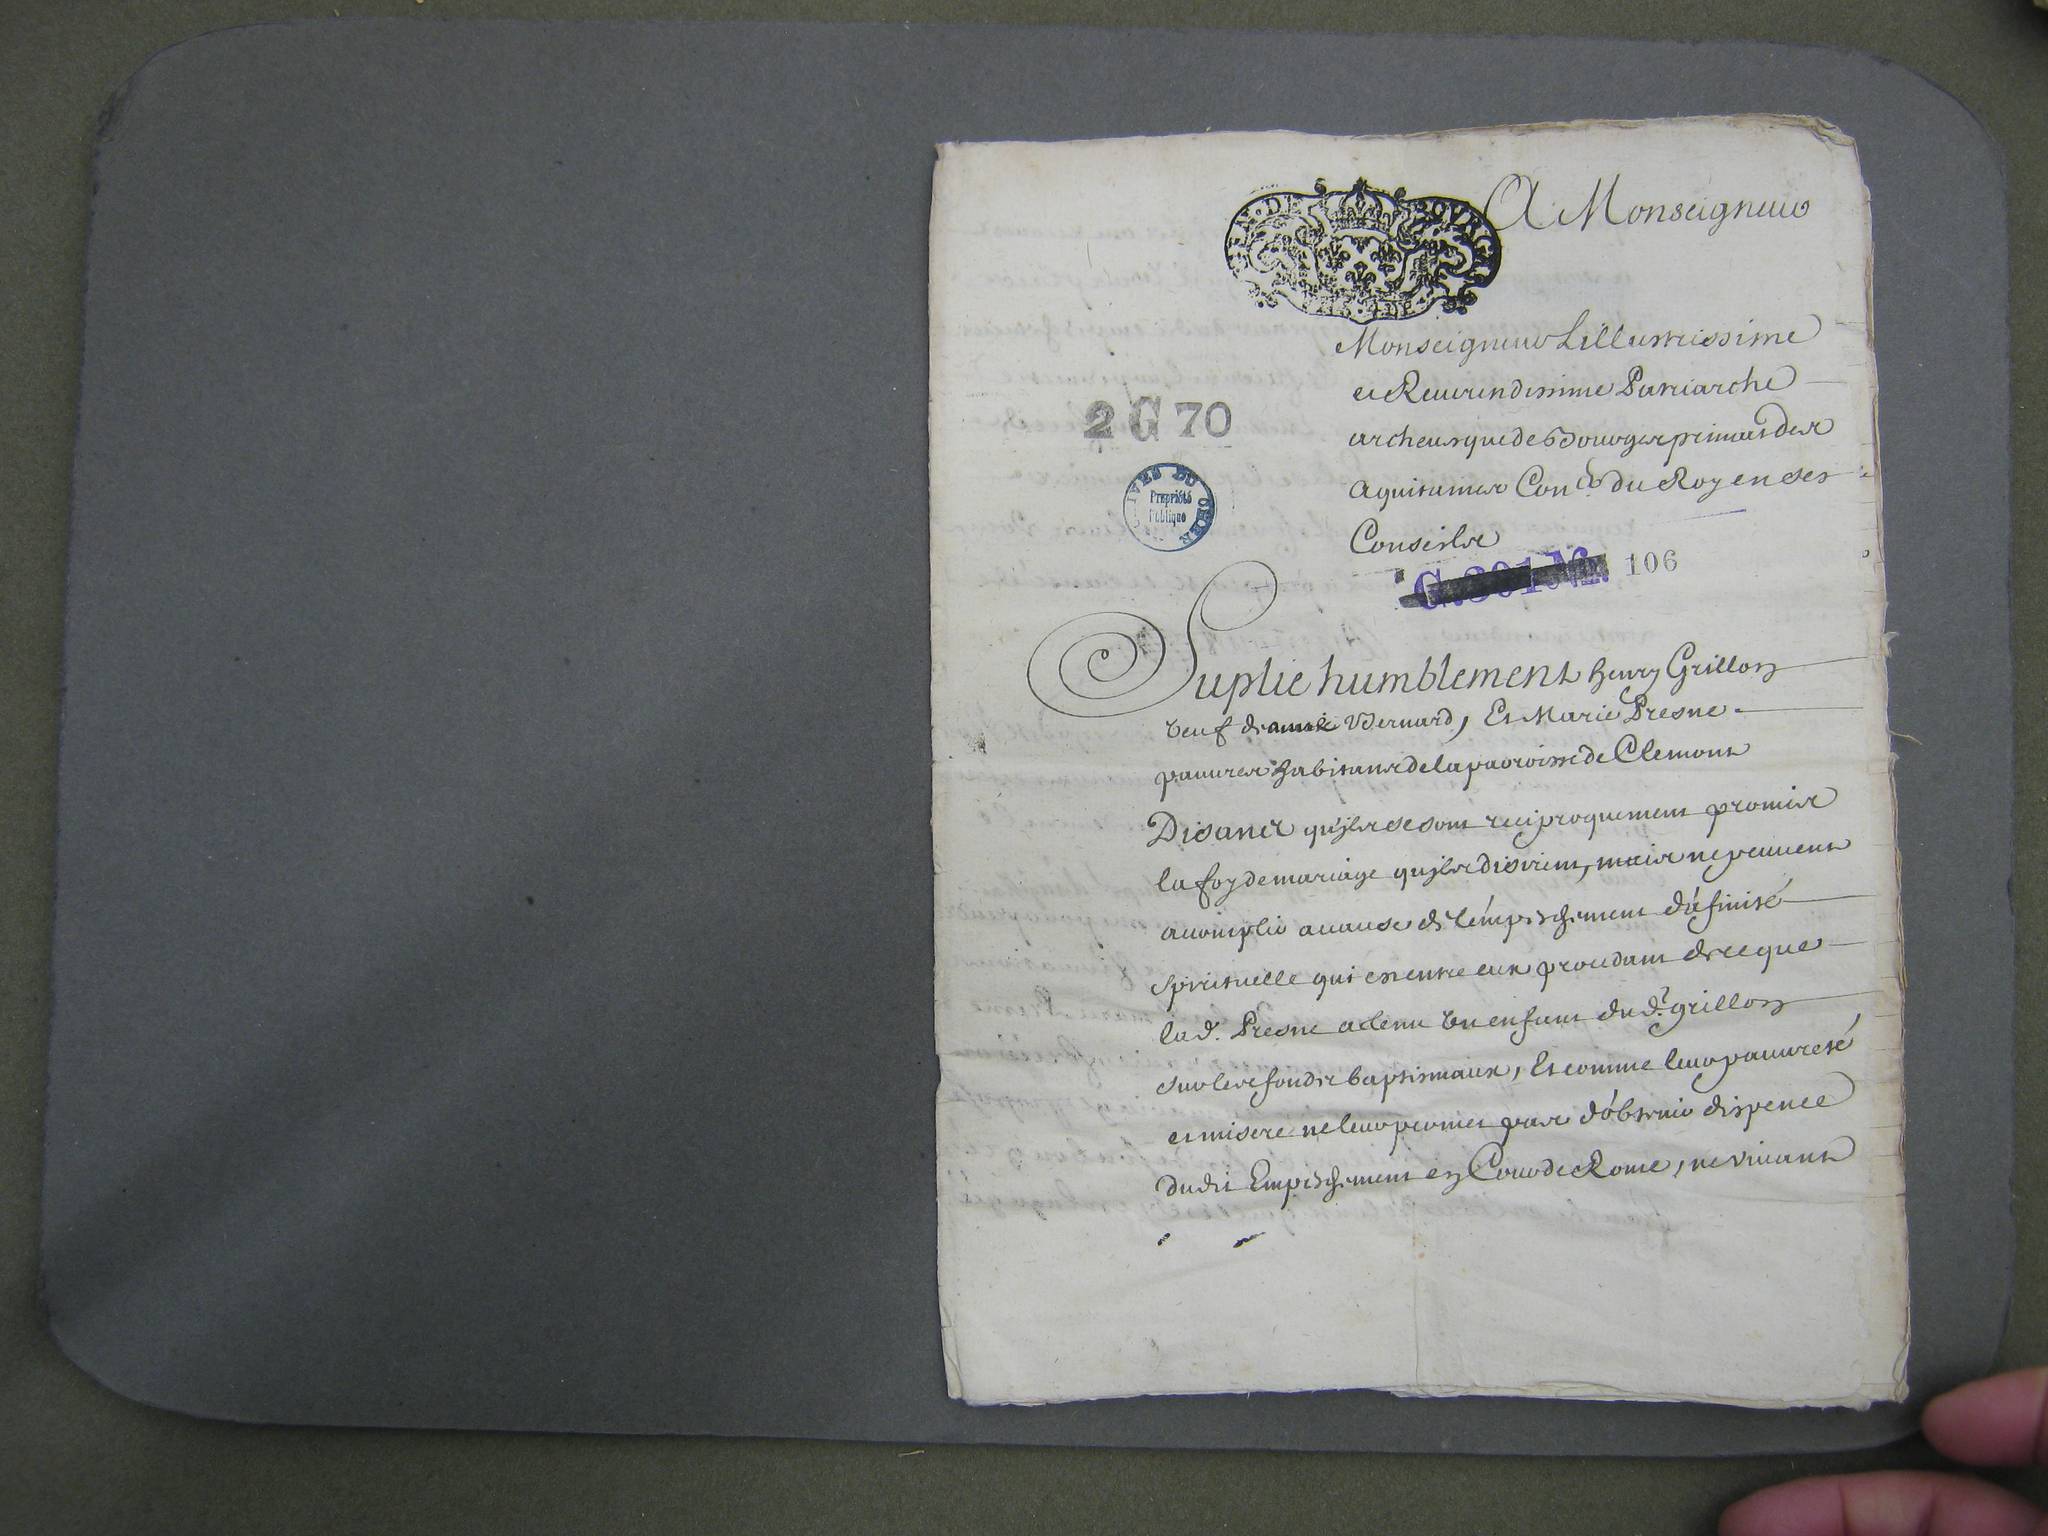 A Monseigneur
GEN. DE BOURGES
Monseigneur Lillustrissime
et Reuerendissime Patriarche
archeuesque de Bourges primat des
aquitaines Con.er du Roy en ses
Conseils
2 G 70
IVES DU CHER
Propriété
Publique
G. 301 N.
106
Suplie humblement henry Grillon
veuf de Bernard, Et Marie Presne
pauures habitans de la parroisse de Clemont
Disants qu'jls se sont reciproquement promis
la foy de mariage qu'jls disirent, mais ne peuuent
acomplir a cause de l'émpeschement d'áfinité
spirituelle qui est entre eux procedant de ce que
la d. Presne a tenu vn enfant du d.t grillon
sur les fonds baptismaux, Et comme leur pauureté
et misere ne leur promet pas d'óbtenir dispence
dudit Empeschement en Cour de Rome, ne viuant